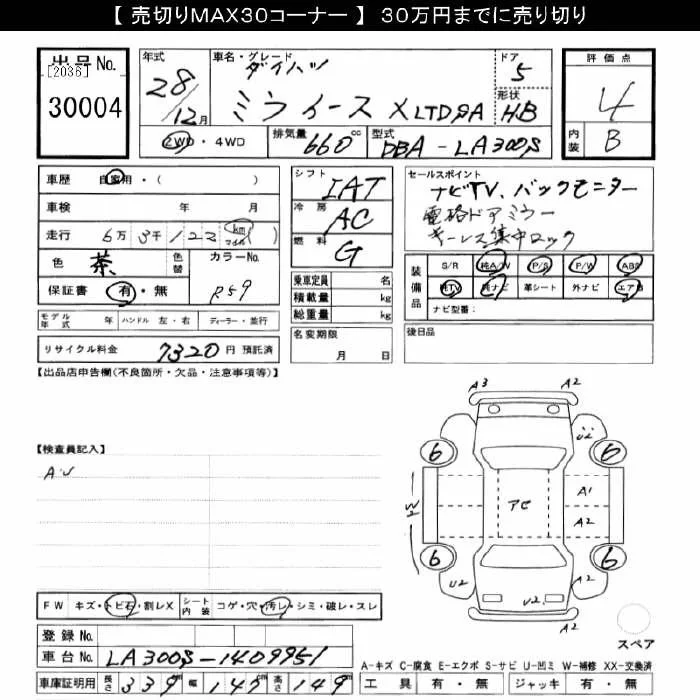 【 売切りMAX30コーナー 】 30万円までに売り切り
出品No.
[2036]
30004
年式
28/12月
車名・グレード
ダイハツ
ミライース XLTDSA
ドア
5
形状
HB
評価点
4
内装
B
2WD・4WD
排気量 660cc
型式 DBA-LA300S
車歴 自家用・( )
車検 年 月
走行 6万 3千 122 km マイル ( )
色 茶 色替
カラーNo.
R59
保証書 有・無
モデル年式 年 ハンドル 左・右 ディーラー・並行
リサイクル料金 7320円 預託済
シフト
IAT
冷房
AC
燃料
G
乗車定員 名
積載量 kg
総重量 kg
名変期限
月 日
セールスポイント
ナビTV、バックモニター
電格ドアミラー
キーレス集中ロック
装備品
S/R 純A/W P/S P/W ABS
純TV 純ナビ 革シート 外ナビ エアB
ナビ型番:
後日品
【出品店申告欄(不良箇所・欠品・注意事項等)】
【検査員記入】
A・U
A3 A2
U2
6 6
W2
アビ
A1
A2
6 6
U2 U2 A2
A2 A2
スペア
FW キズ・トビ石・割レX
シート内装 コゲ・穴・汚レ・シミ・破レ・スレ
登録No.
車台No. LA300S-1409951
車庫証明用 長さ 339cm 幅 147cm 高さ 149cm
A-キズ C-腐食 E-エクボ S-サビ U-凹ミ W-補修 XX-交換済
工具 有・無 ジャッキ 有・無